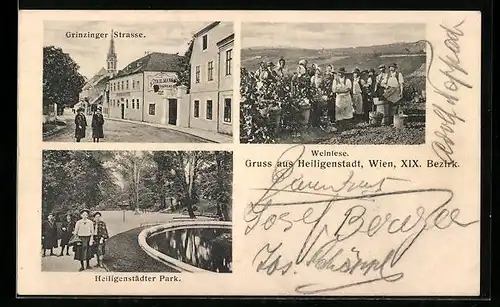 Grinzinger Strasse.
Weinlese.
Gruss aus Heiligenstadt, Wien, XIX. Bezirk.
Josef Berger
Jos.
Heiligenstädter Park.